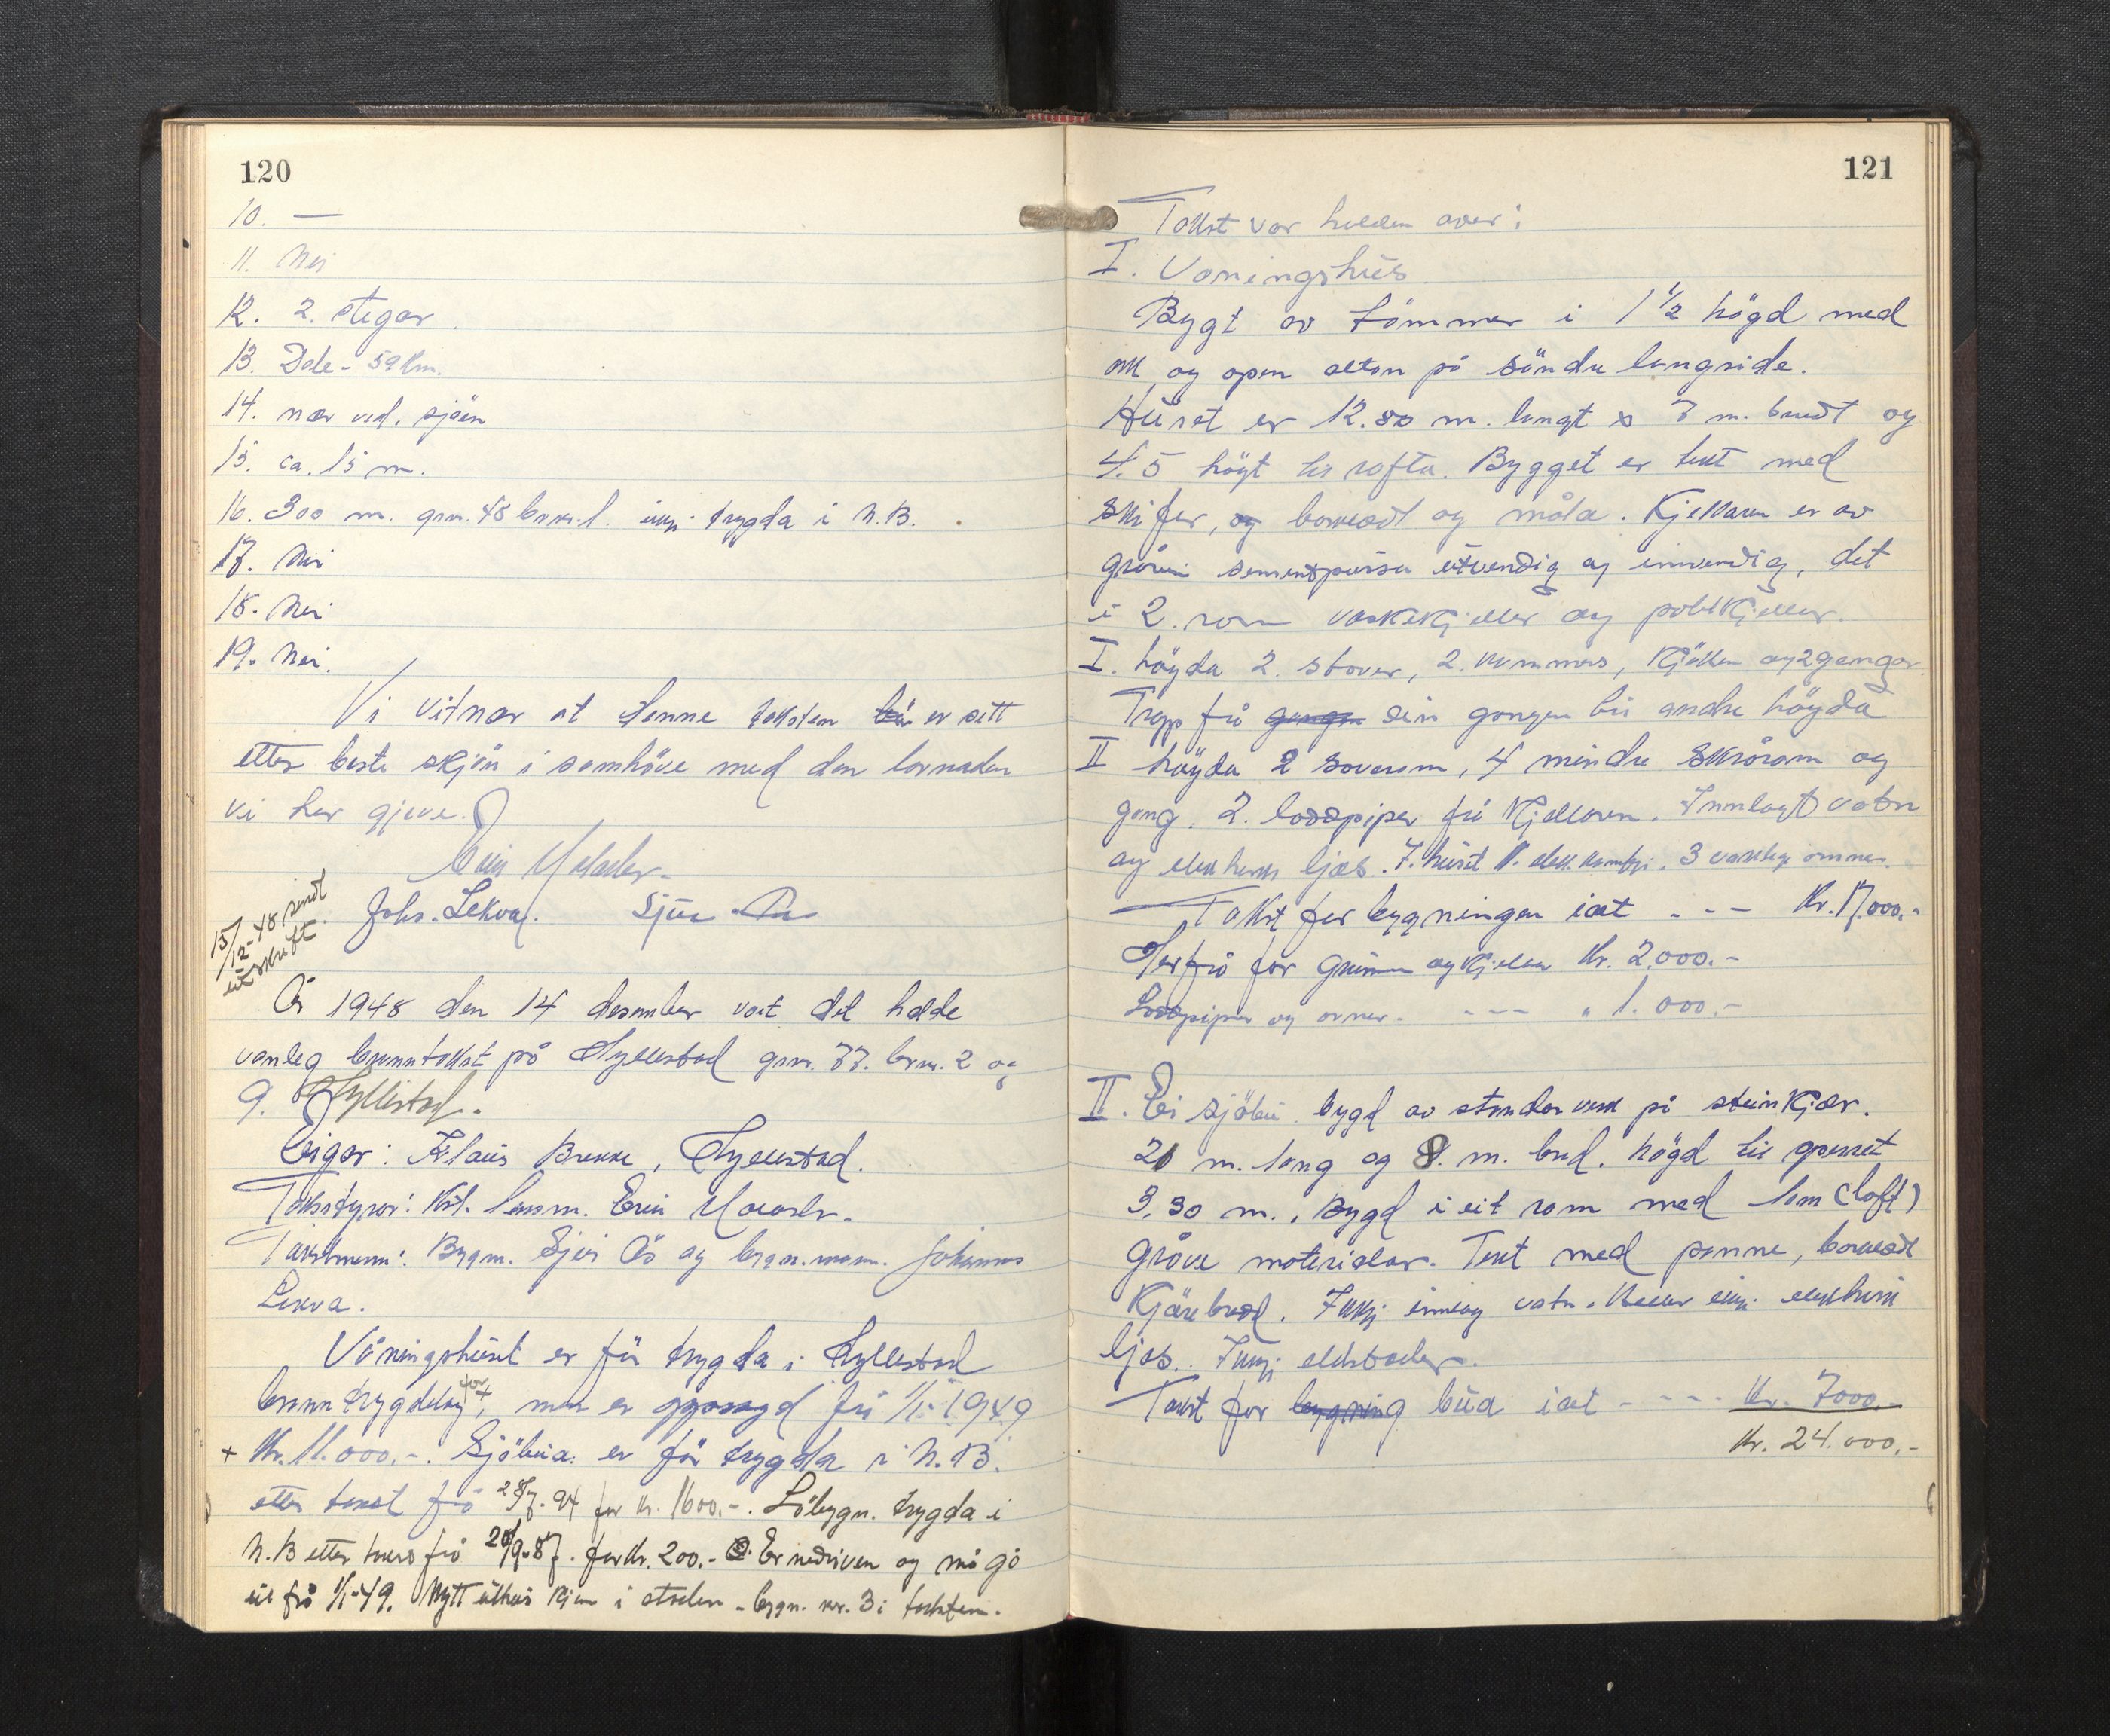 120
10. —
11. Nei
12. 2. stegar
13. Dale - 59 km.
14. nær ved. sjøen
15. ca. 15 m.
16. 300 m. gnr. 48 brnr. 1. ikkj. trygda i N.B.
17. Nei
18. Nei
19. Nei.
Vi vitnar at denne taksten er sett
etter beste skjön i samhöve med den lovnaden
vi har gjeve.
Johs. Lekva.
15/12-48 sendt
utskrift.
År 1948 den 14 desember vart det halde
vanleg branntakst på Hyllestad gnr. 77. brnr. 2 og
9. Hyllestad.
Eigar: Klaus Brekke, Hyllestad.
Takstmenn: Bygm. Sjur Ås og bygn.mann. Johannes
Lekva.
Våningshuset er för trygda i Hyllestad
branntrygdelag for +, men er uppsagd frå 1/1-1949
+ Kr. 11.000.-. Sjöbua er för trygda i N.B.
etter takst frå for kr. 1600.-. Löbygn. trygda i
N.B etter takst frå for Kr. 200.- Er nedriven og må gå
ut frå 1/1-49. Nytt uthus kjem i staden - bygn. nr. 3 i taksten.
121
Takst var halden over:
I. Våningshus
Bygt av tömmer i 1 1/2 högd med
ark og open altan på söndre langside.
Huset er 12.80 m. langt x 7 m. breidt og
4.5 högt til rafta. Bygget er tekt med
skifer, og bordkledt og måla. Kjellaren er av
gråstein sementpussa utvendig og innvendig, det
i 2. rom vaskekjeller og potetkjeller.
I. högda 2. stover, 2. kammers, kjöken og 2 gangar.
Trapp frå gangen ein gangen til andre högda
II högda 2 soverom, 4 mindre skråram og
gang. 2. loddpiper frå kjellaren. Innlagt vatn
og elektrisk ljos. I huset 1. elek. komfyr. 3 vanlege omnar.
Takst for bygningen i alt - - - Kr. 17.000.-
Herfrå for grunn og kjellar Kr. 2.000.-
Loddpiper og omner. - - - " 1.000.-
II. Ei sjöbu bygd av standarverk på steinkjær.
20 m. lang og 8. m. breid. högd til gesimset
3.30 m. Bygd i eit rom med lem (loft)
Gråve materialar. Tekt med panne, bordkledt
Ikkj innlag vatn. Heller ikkj elektrisk
ljos. Ikkj eldstader.
Takst for bygning bua i alt - - - Kr. 7000.-
Kr. 24.000.-